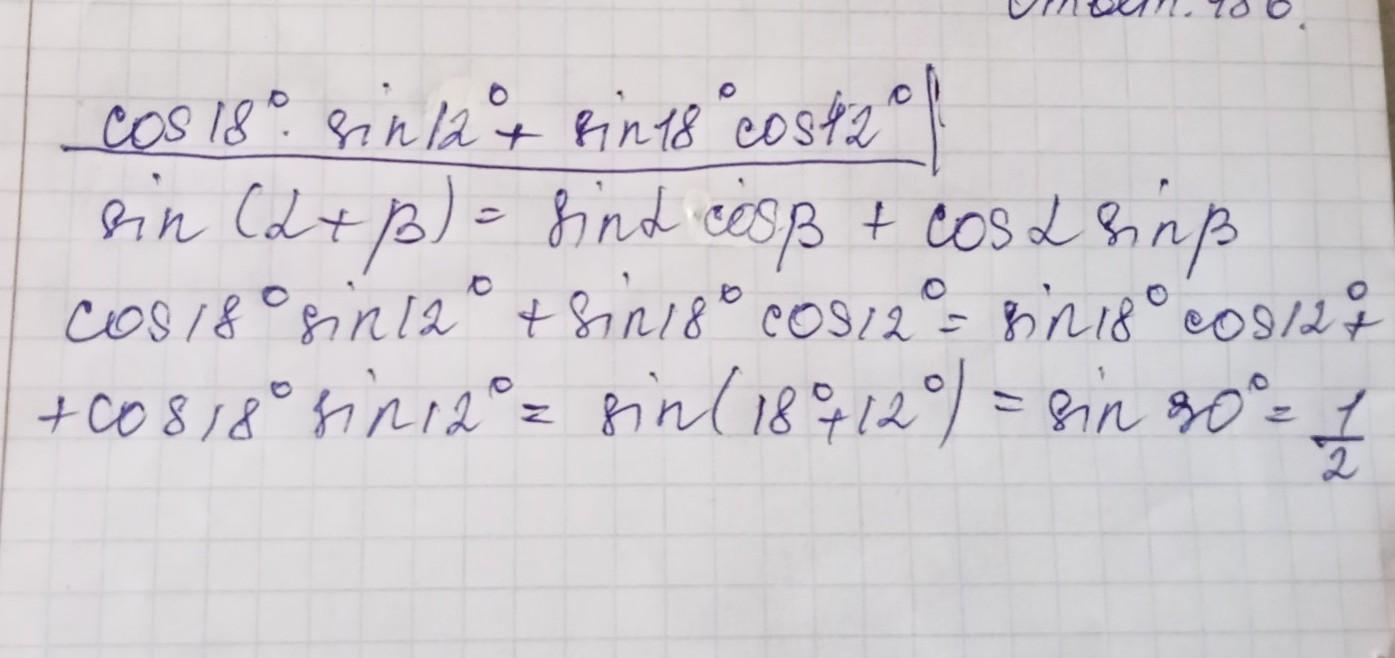 cos18°· sin12°+ sin18° cos12°
sin (α+β)= sinα cosβ + cosα sinβ
cos18° sin12° + sin18° cos12° = sin18° cos12° +
+cos18° sin12° = sin(18°+12°) = sin 30° = 1/2